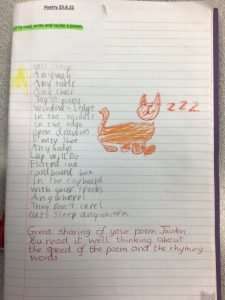 Poetry 23.6.22
and recite a poem
Cats sleep
Anywhere
Any table
Any chair
Top of piano
Window-ledge
In the middle
On the edge
Open drawer
Empty shoe
Anybody's
Lap will do
Fitted in a
cardboard box
In the cupboard
with your frocks
Anywhere
They don't care!
Cats sleep anywhere.
z z z
Great sharing of your poem
You read it well thinking about
the speed of the poem and the rhyming
words